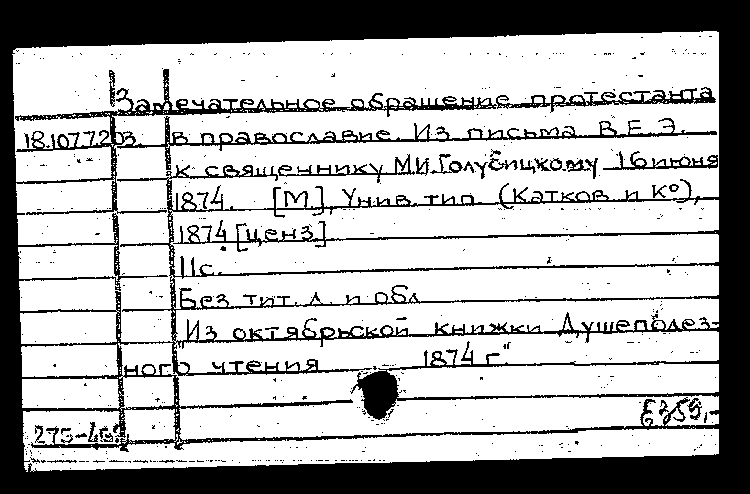 Замечательное обращение протестанта
18.107.7.203. в православие. Из письма В.Е.Э.
к священнику М.И.Голубицкому 16 июня
1874. [М.], Унив. тип. (Катков и К°),
1874 [ценз.]
11с.
Без тит. л. и обл.
"Из октябрьской книжки Душеполез-
ного чтения 1874 г"